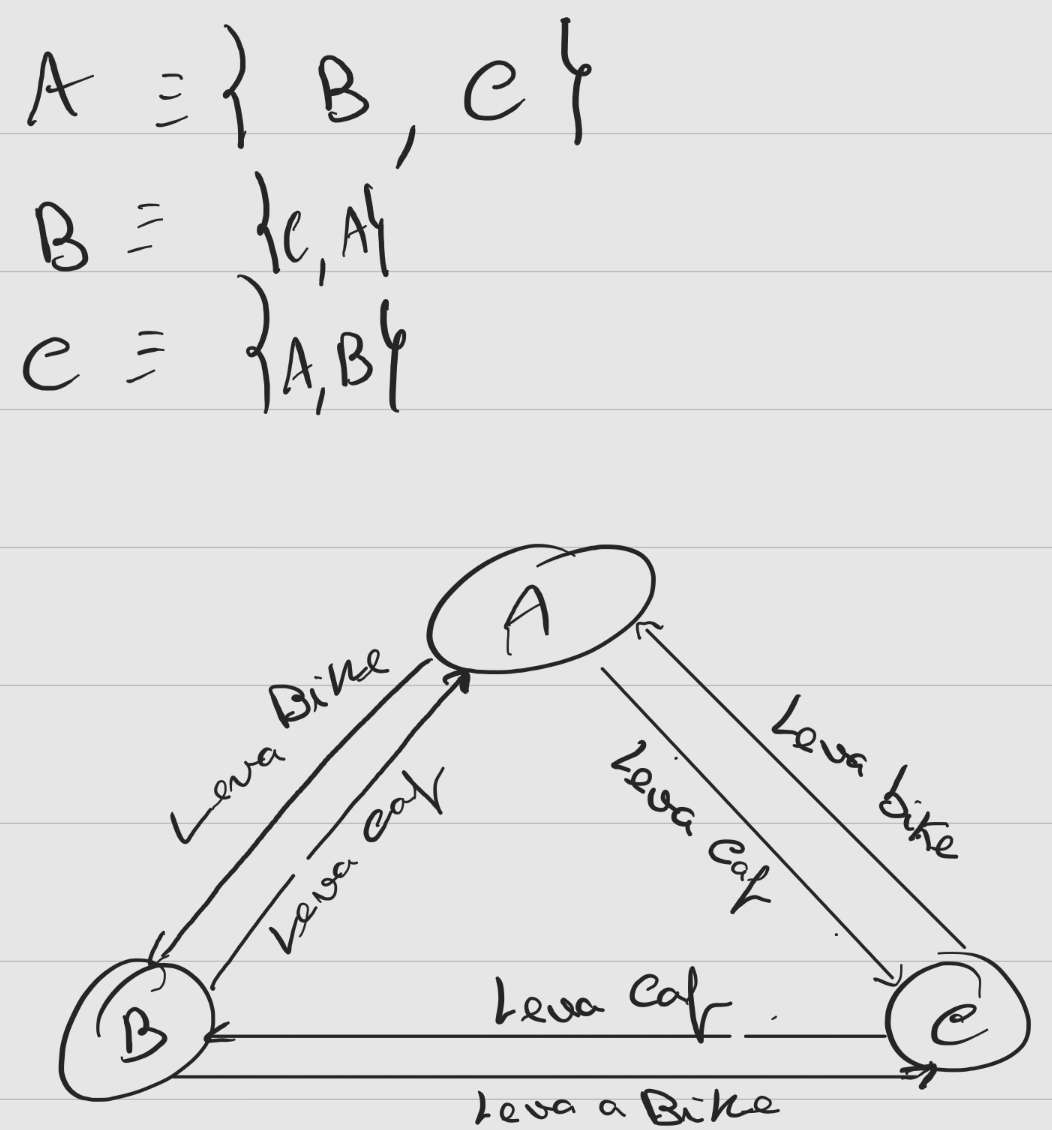 A ≡ { B, C }
B ≡ {C, A}
C ≡ {A, B}
A
Leva Bike
Leva Car
Leva Car
Leva bike
B
Leva Car
C
Leva a Bike